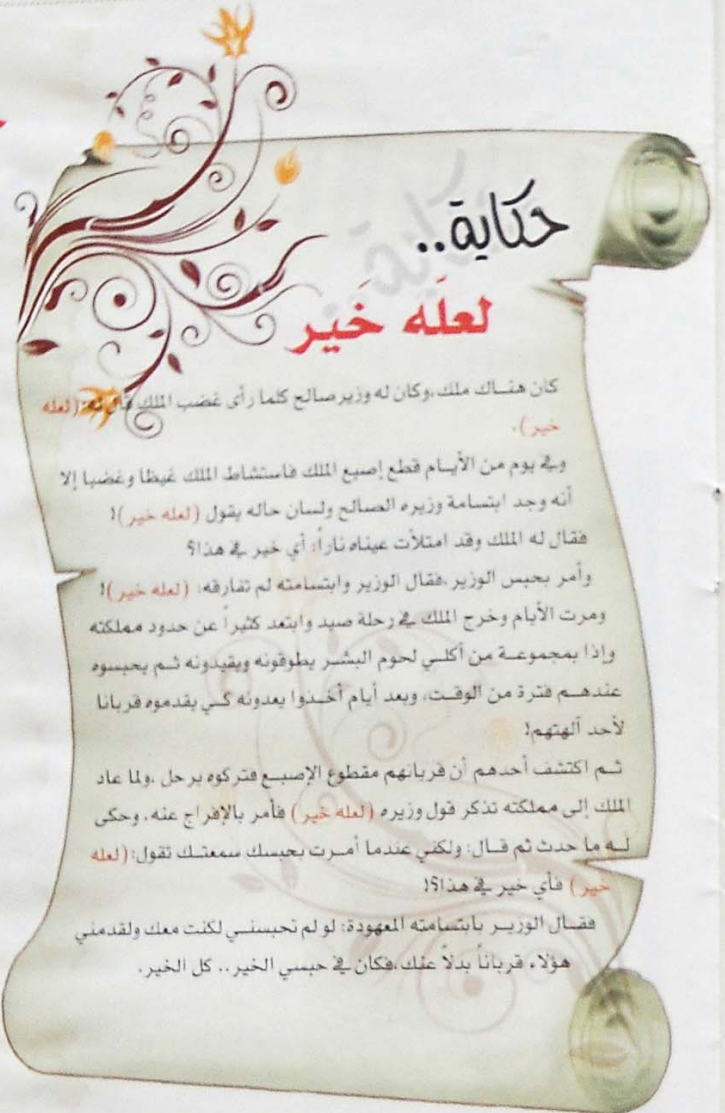 حكاية..
لعلَه خَير
كان هنـاك ملك ،وكان له وزير صالح كلما رأى غضب الملك قال له: (لعله
خير).
وفي يوم من الأيـام قطع إصبع الملك فاستشاط الملك غيظا وغضبا إلا
أنه وجد ابتسامة وزيره الصالح ولسان حاله يقول (لعله خير)!
فقال له الملك وقد امتلأت عيناه ناراً: أي خير في هذا؟
وأمر بحبس الوزير ،فقال الوزير وابتسامته لم تفارقه: (لعله خير)!
ومرت الأيام وخرج الملك في رحلة صيد وابتعد كثيراً عن حدود مملكته
وإذا بمجموعـة من أكلـي لحوم البشـر يطوقونه ويقيدونه ثـم يحبسوه
عندهـم فترة من الوقـت، وبعد أيام أخـذوا يعدونه كـي يقدموه قربانا
لأحد آلهتهم!
ثـم اكتشف أحدهم أن قربانهم مقطوع الإصبـع فتركوه يرحل ،ولما عاد
الملك إلى مملكته تذكر قول وزيره (لعله خير) فأمر بالإفراج عنه، وحكى
لـه ما حدث ثم قـال: ولكني عندما أمـرت بحبسك سمعتـك تقول: (لعله
خير) فأي خير في هذا؟!
فقـال الوزيـر بابتسامته المعهودة: لو لم تحبسنـي لكنت معك ولقدمني
هؤلاء قرباناً بدلاً عنك،فكان في حبسي الخير.. كل الخير.